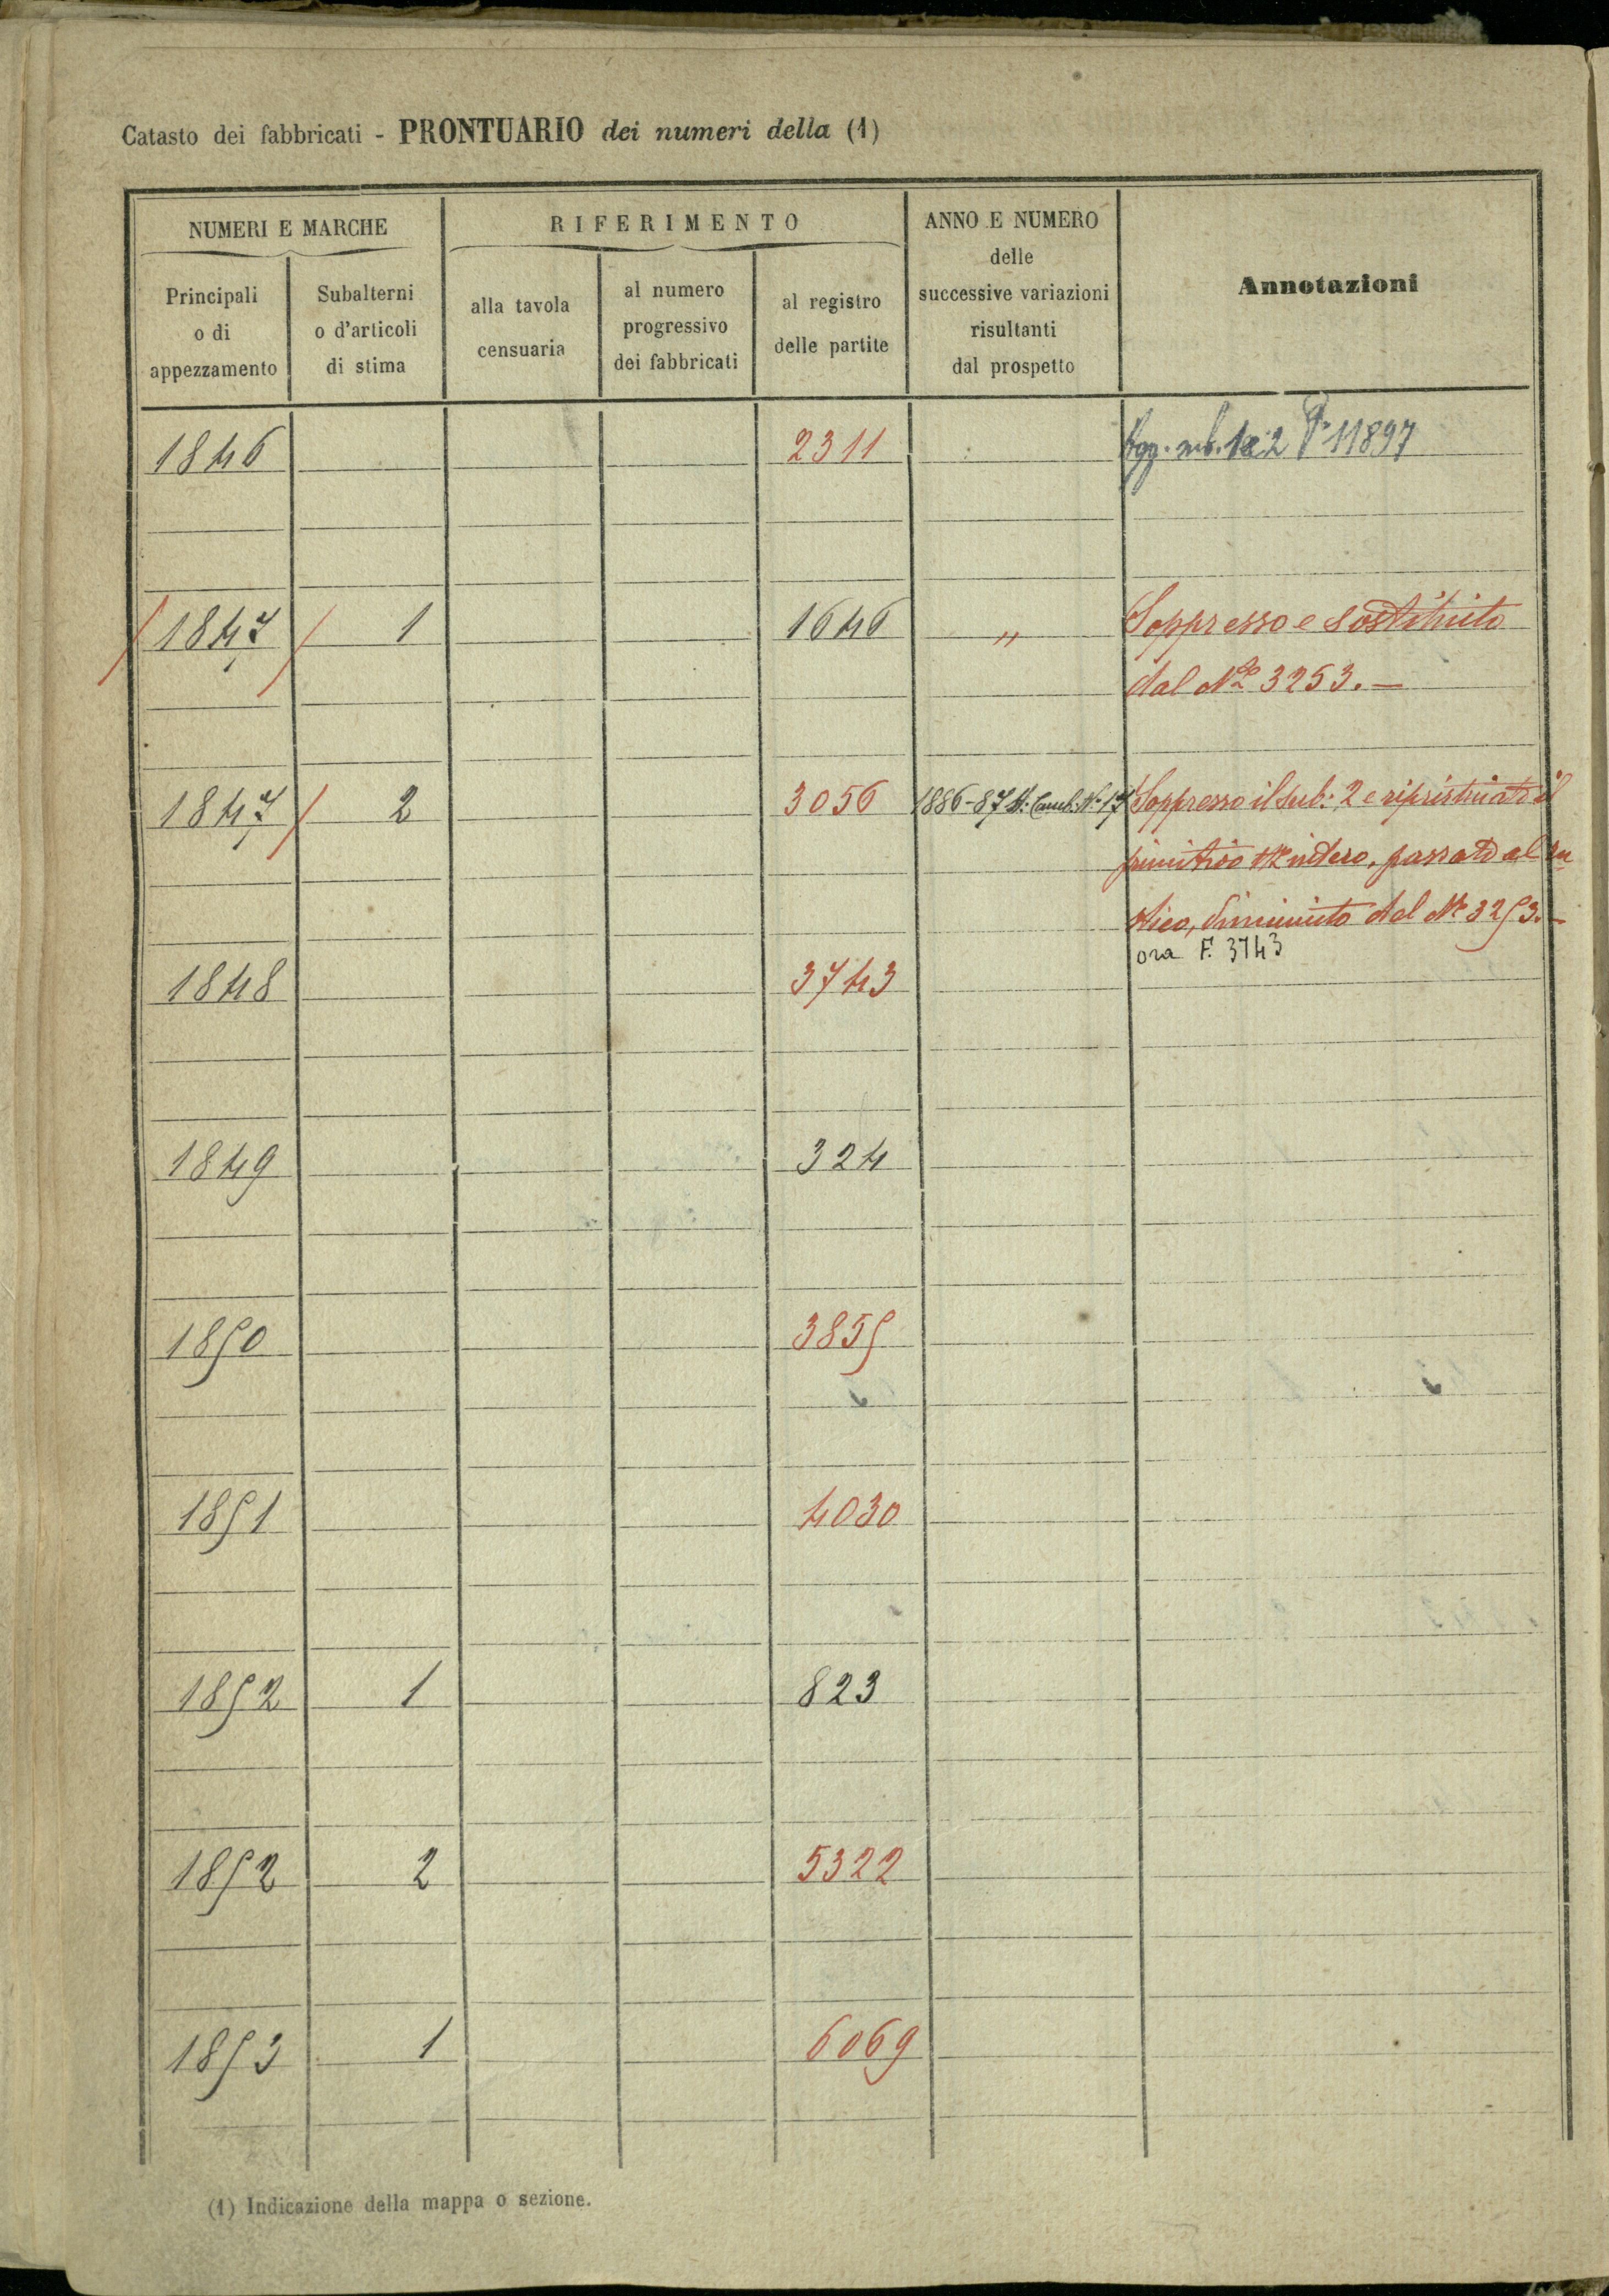 Catasto dei fabbricati - PRONTUARIO dei numeri della (1)
NUMERI E MARCHE
RIFERIMENTO
ANNO E NUMERO
delle
successive variazioni
risultanti
dal prospetto
Annotazioni
Principali
o di
appezzamento
Subalterni
o d'articoli
di stima
alla tavola
censuaria
al numero
progressivo
dei fabbricati
al registro
delle partite
1846 2311 sub. 1 e 2 11897
1847 1 1646 " Soppresso e sostituito
dal No 3253.—
1847 2 3056 1886-87 N. 17 Soppresso il sub: 2 e ripristinato il
primitivo intero, passato al ru
stico, diminuito dal No 3253.—
ora F. 3743
1848 3743
1849 324
1850 3855
1851 4030
1852 1 823
1852 2 5322
1853 1 6069
(1) Indicazione della mappa o sezione.